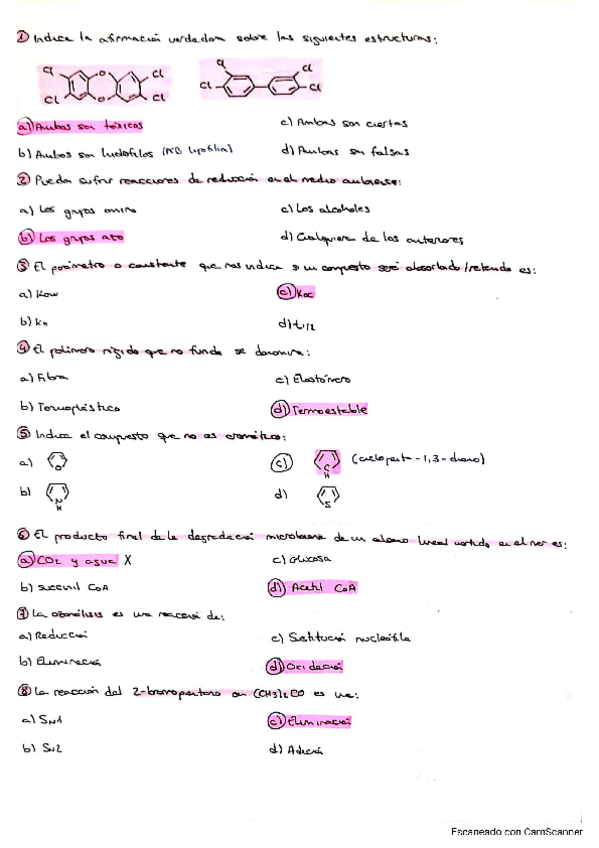 ① Indica la afirmación verdadera sobre las siguientes estructuras:
Cl O Cl
Cl O Cl
Cl Cl
Cl Cl
a) Ambos son tóxicos
c) Ambas son ciertas
b) Ambos son
d) Ambas son falsas
② Pueden sufrir reacciones de reducción en el medio ambiente:
a) Los grupos amino
c) Los alcoholes
b) Los grupos azo
d) Cualquiera de los anteriores
③ El parámetro o constante que nos indica si un compuesto será absorbido/retenido es:
a) Kow
c) Koc
b) KH
d) t1/2
④ El polímero rígido que no funde se denomina:
a) Fibra
c) Elastómero
b) Termoplástico
d) Termoestable
⑤ Indica el compuesto que no es aromático:
a) O
c) C H (ciclopenta-1,3-dieno)
b) N H
d) S
⑥ El producto final de la degradación microbiana de un alcano lineal vertido en el mar es:
a) CO2 y agua X
c) Glucosa
b) Succinil CoA
d) Acetil CoA
⑦ La ozonólisis es una reacción de:
a) Reducción
c) Sustitución nucleófila
b) Eliminación
d) Oxidación
⑧ La reacción del 2-bromopentano con (CH3)3CO es una:
a) SN1
c) Eliminación
b) SN2
d) Adición
Escaneado con CamScanner